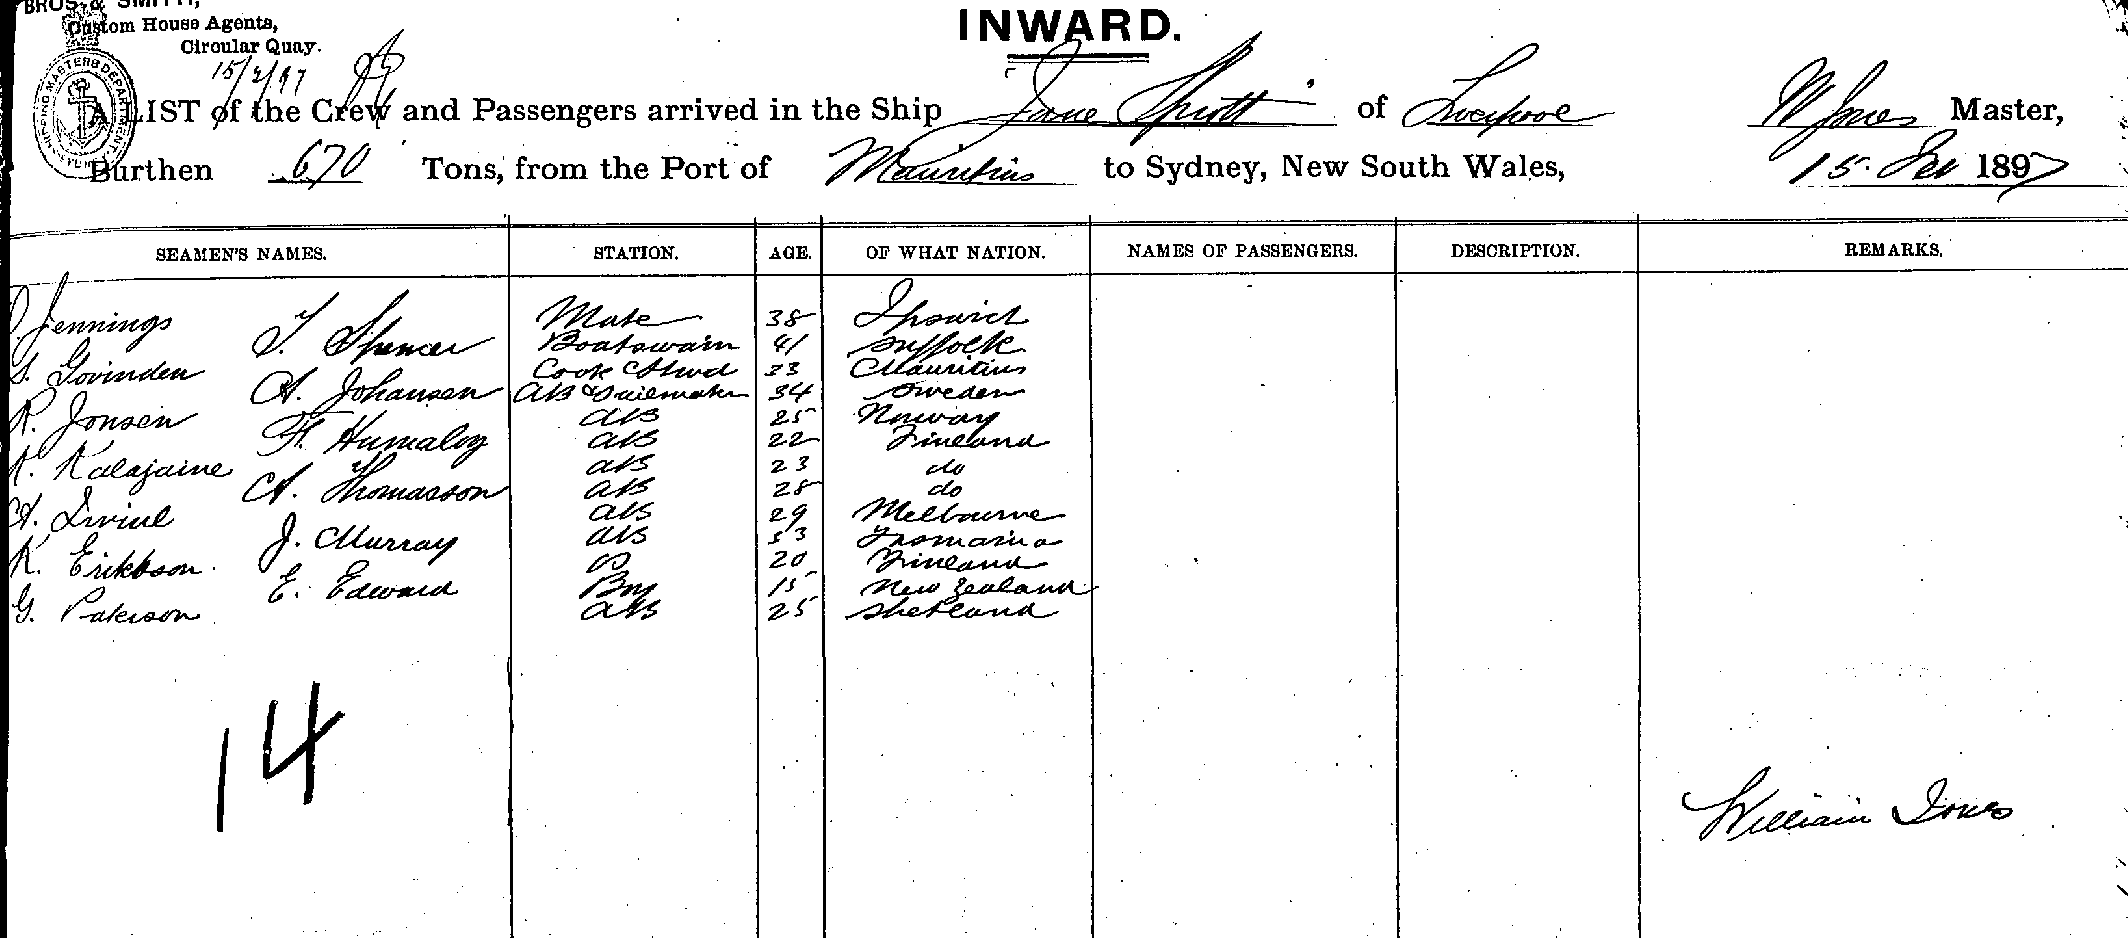 BROS. & SMITH,
Custom House Agents,
Circular Quay.
15/2/97
INWARD.
A LIST of the Crew and Passengers arrived in the Ship Jane Sprott of Liverpool W Jones Master,
Burthen 670 Tons, from the Port of Mauritius to Sydney, New South Wales, 15. Feb 1897
SEAMEN'S NAMES. STATION. AGE. OF WHAT NATION. NAMES OF PASSENGERS. DESCRIPTION. REMARKS.
Jennings Mate 38 Ipswich
T. Spencer Boatswain 41 Suffolk
G. Govinden Cook & Stwd 33 Mauritius
A. Johansen AB & Sailmaker 34 Sweden
R. Jonsen AB 25 Norway
F. Humaloy AB 22 Finland
K. Kalajaine AB 23 do
A. Thomasson AB 28 do
A. Irvine AB 29 Melbourne
J. Murray AB 53 Tasmania
K. Erikkson 20 Finland
E. Edward Boy 15 New Zealand
G. Paterson AB 25 Shetland
14
William Jones